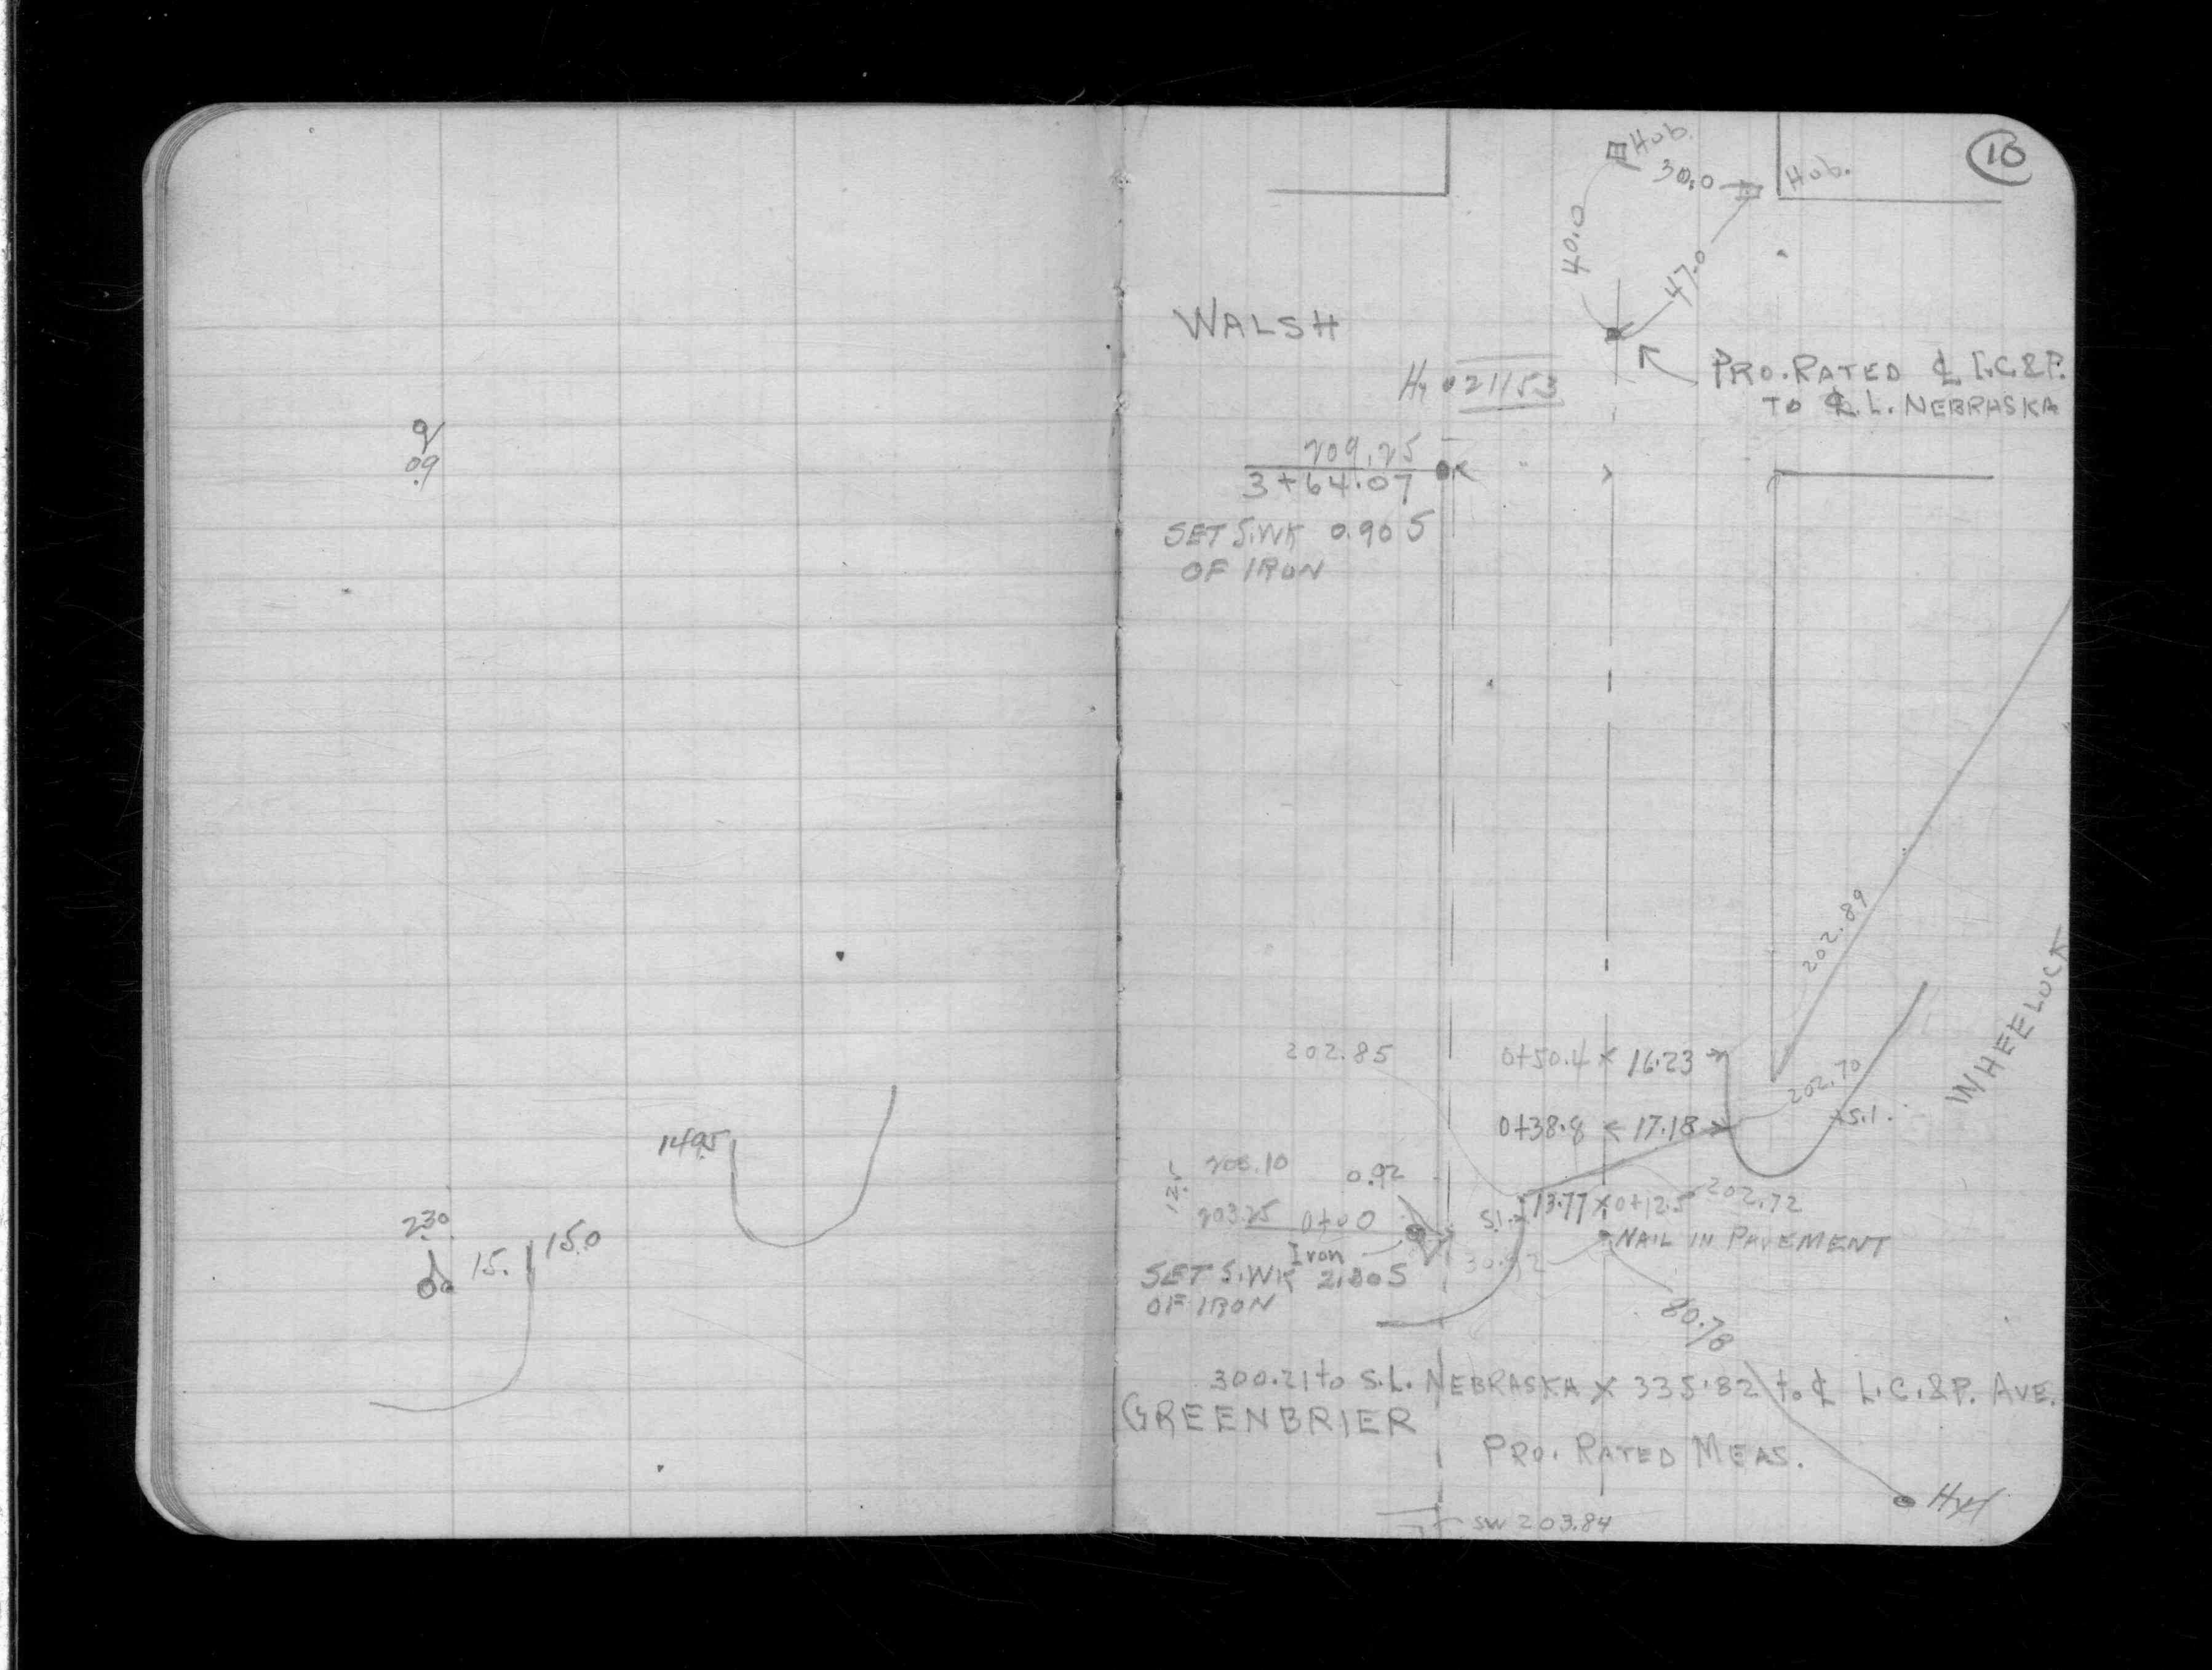 9
.09
149.5
2.30
15.
15.0
10
Hub.
30.0
Hub.
40.0
47.0
WALSH
PRO. RATED ℄ L.C.&P.
TO ℄ L. NEBRASKA
Hy 021153
209.25
3+64.07
SET S.WK 0.905
OF IRON
202.89
WHEELOCK
202.85
0+50.4 16.23
202.70
S.I.
0+38.8 17.18
0.92
S.I. 13.77 0+12.5 202.72
203.25 0+00
NAIL IN PAVEMENT
Iron
SET S.WK 2.805
OF IRON
80.78
300.21 to S.L. NEBRASKA X 335.82 to ℄ L.C.&P. AVE.
GREENBRIER
PRO. RATED MEAS.
Hyd
SW 203.84